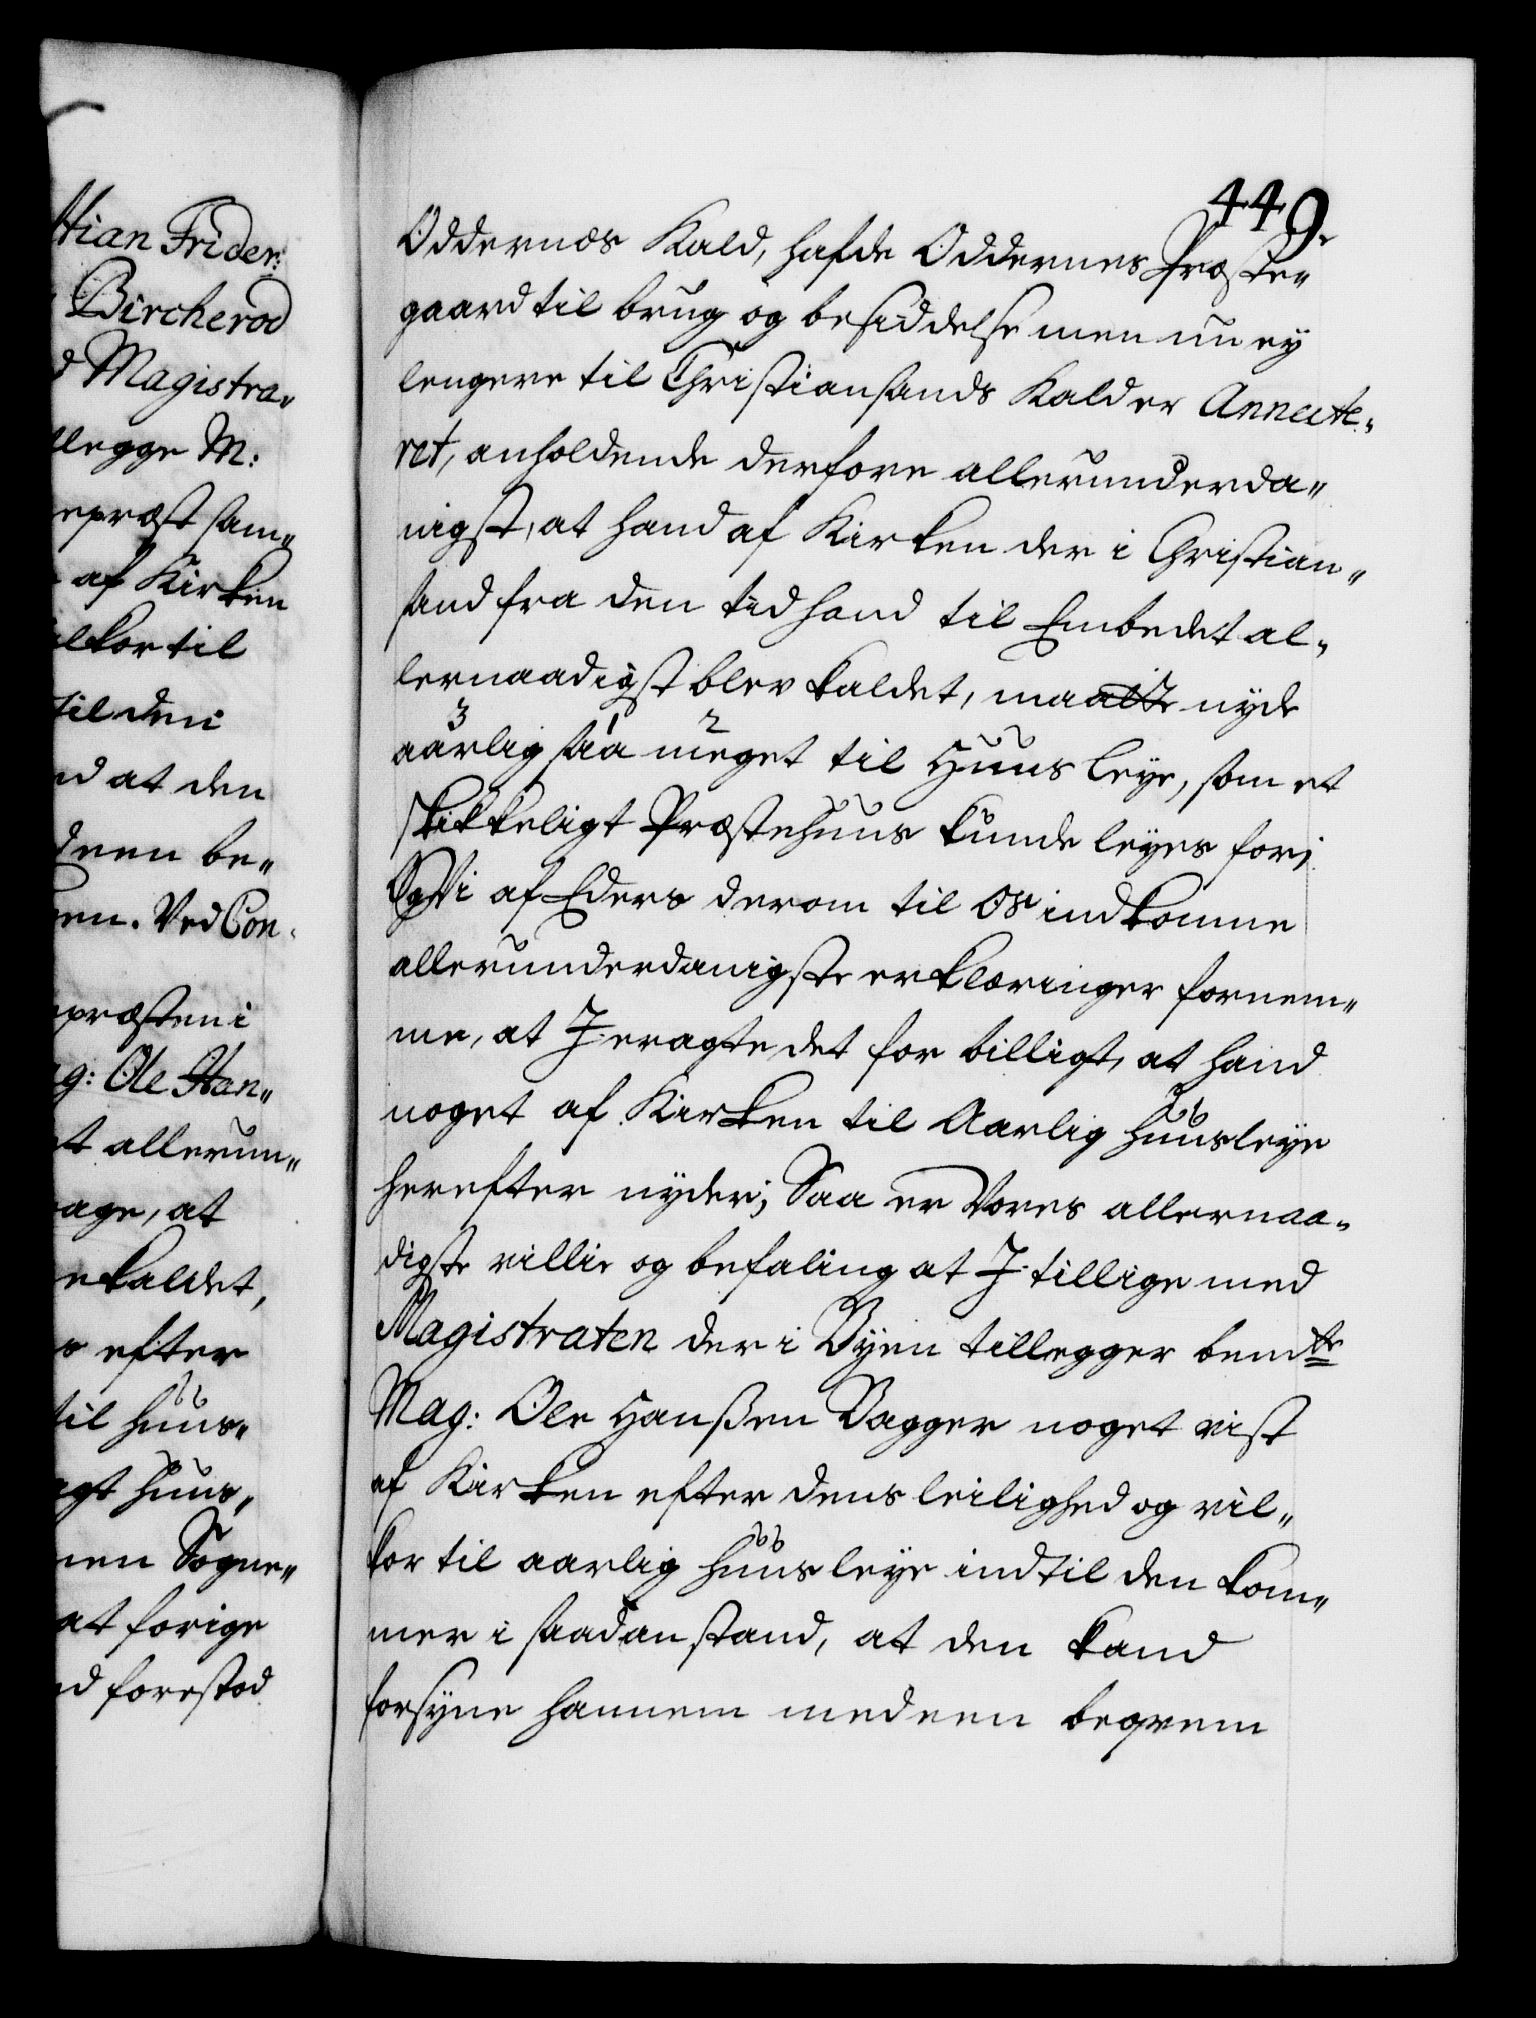 tian Frider:
Bircherod
d Magistra„
llegge M:
epræst sam„
af Kirken
lkor til
til den i
nd at den
deen be„
en. Ved Con„
præsten i
g: Ole Han„
t allerun„
age, at
ekaldet,
s efter
til huus„
igt huus„
nen Sogne„
at forige
nd forestod
449.
Oddernes Kald, hafde Oddernes Præste„
gaard til brug og besiddelse men nu ey
lengere til Christiansands Kald er Annecte„
ret, anholdende derfore allerunderda„
nigst, at hand af Kirken der i Christian„
sand fra den tid hand til Embedet al„
lernaadigst blev kaldet, maatte nyde
3 1 2
aarlig saa meget til Huus leye, som et
skikkeligt Præstehuus kunde leyes for;
Og Vi af Eders derom til Os indkomne
allerunderdanigste erklæringer fornem„
me, at I eragte det for billigt, at hand
noget af Kirken til Aarlig huusleye
herefter nyder; Saa er Vores allernaa„
digste villie og befaling at I tillige med
Magistraten der i Byen tillegger bemte
Mag: Ole Hanßen Bagger noget vist
af Kirken efter dens leilighed og vil„
kor til aarlig huusleye indtil den kom„
mer i saadan stand, at den kand
forsyne hannem med een beqvem